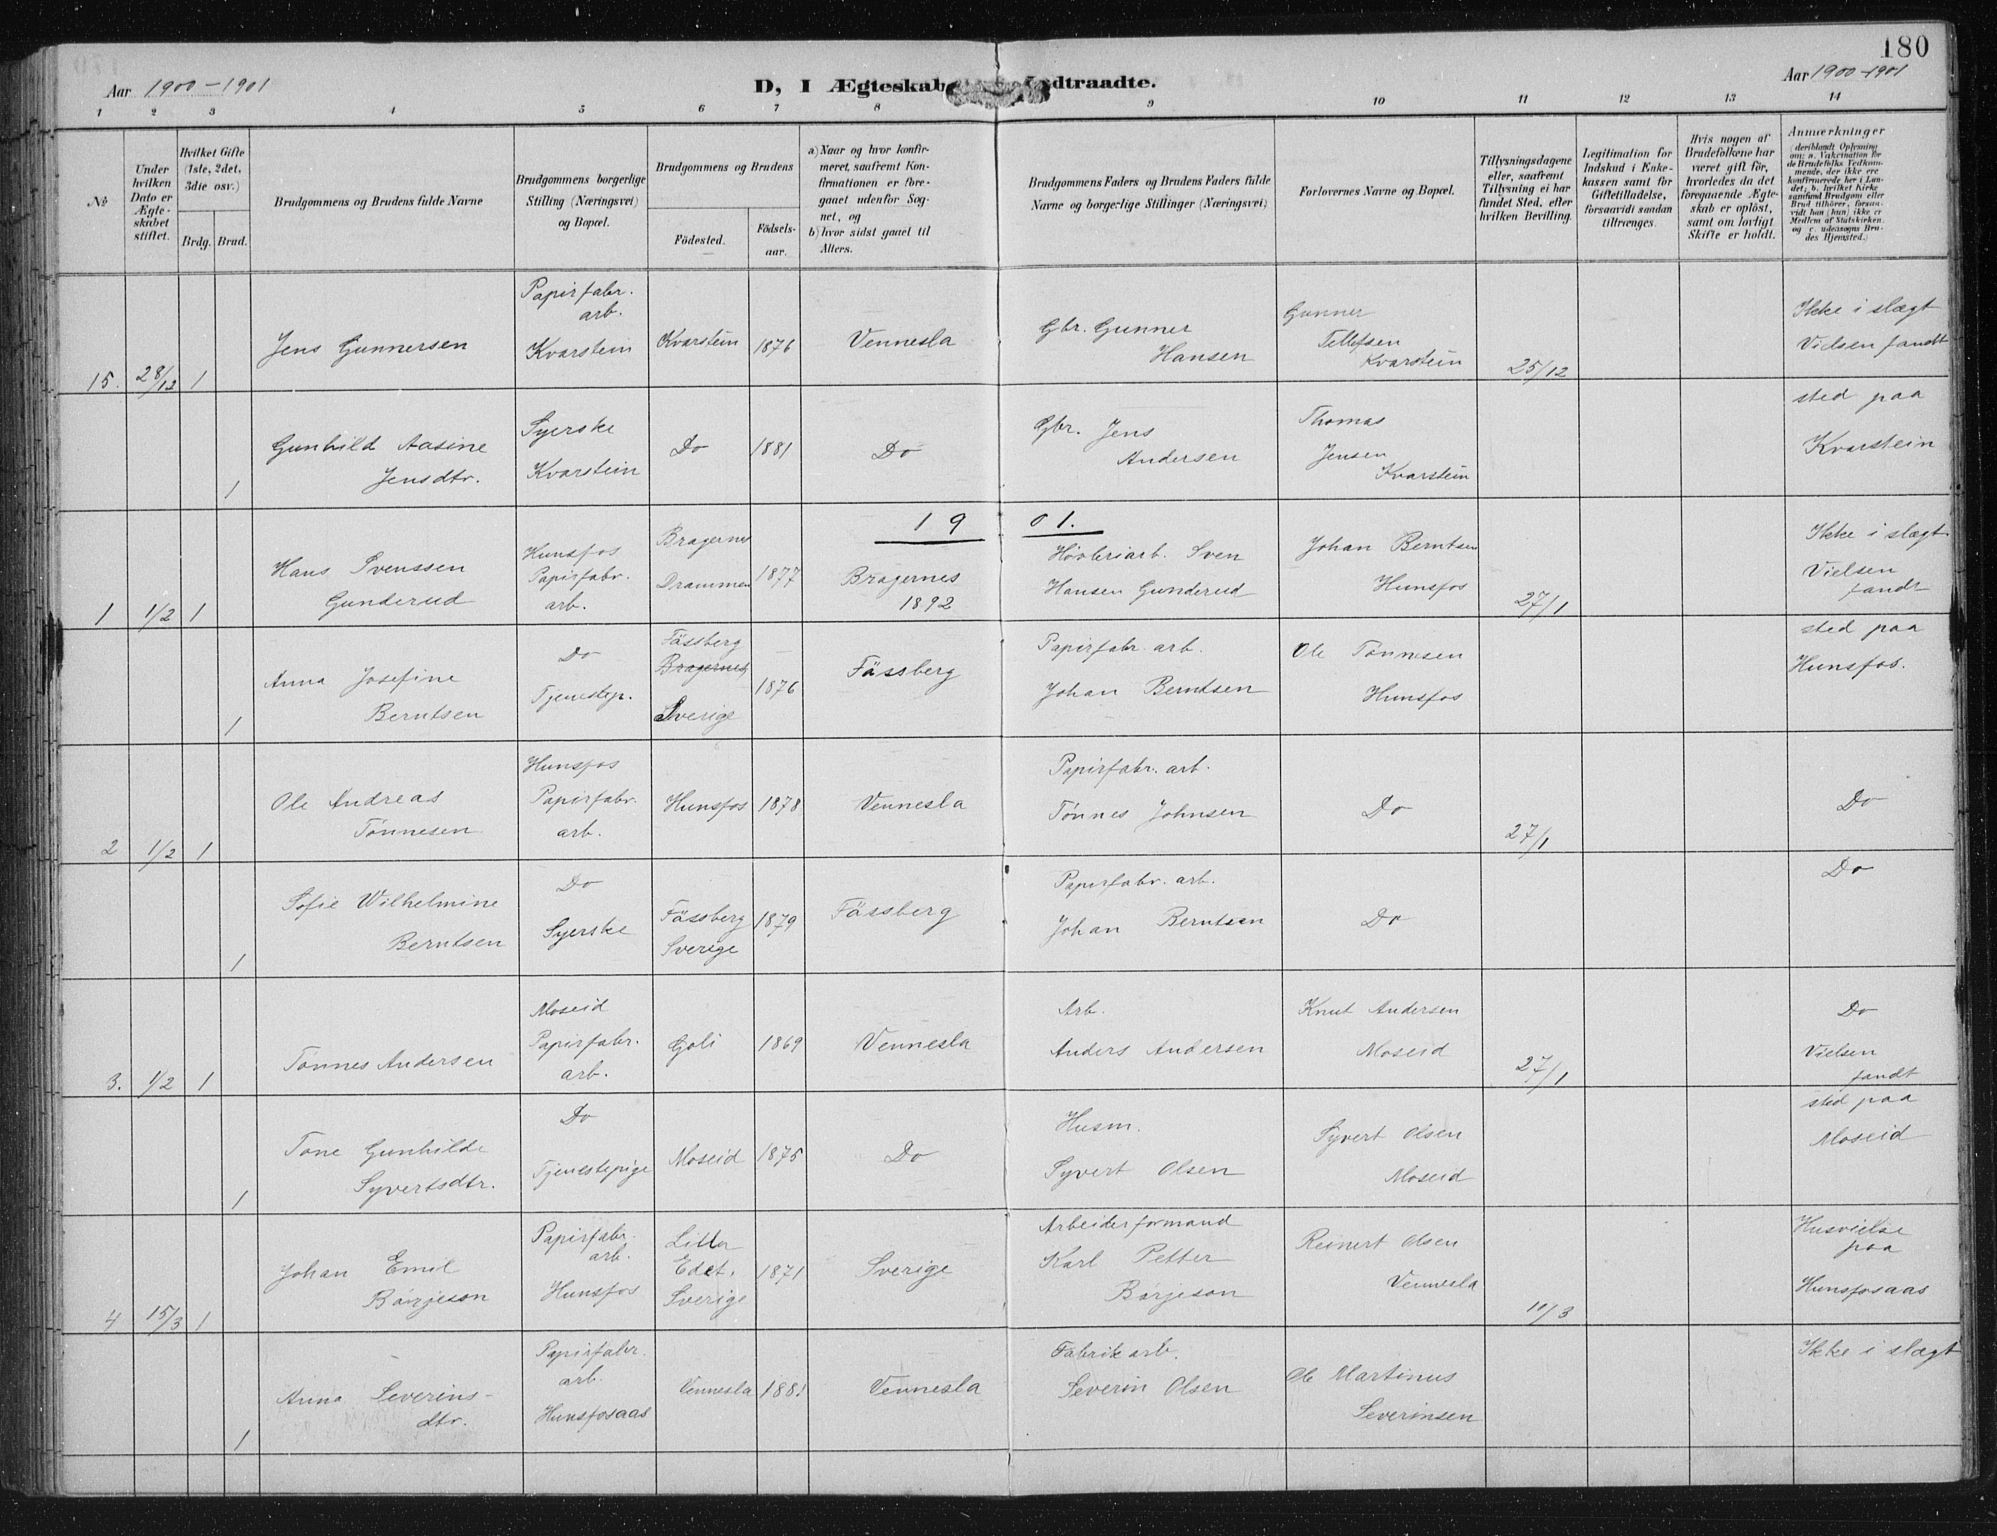 180
Aar 1900-1901
D, I Ægteskab
dtraadte.
Aar 1900-1901
1 2 3 4 5 6 7 8 9 10 11 12 13 14
№
Under hvilken Dato er Ægteskabet stiftet.
Hvilket Gifte (1ste, 2det, 3die osv.)
Brdg. Brud.
Brudgommens og Brudens fulde Navne
Brudgommens borgerlige Stilling (Næringsvei) og Bopæl.
Brudgommens og Brudens
Fødested.
Fødsels-aar.
a) Naar og hvor konfirmeret, saafremt Konfirmationen er foregaaet udenfor Sognet, og
b) hvor sidst gaaet til Alters.
Brudgommens Faders og Brudens Faders fulde Navne og borgerlige Stillinger (Næringsvei)
Forlovernes Navne og Bopæl.
Tillysningsdagene eller, saafremt Tillysning ei har fundet Sted, efter hvilken Bevilling.
Legitimation for Indskud i Enkekassen samt for Giftetilladelse, forsaavidt saadan tiltrænges.
Hvis nogen af Brudefolkene har været gift før, hvorledes da det foregaaende Ægteskab er opløst, samt om lovligt Skifte er holdt.
Anmærkninger
(deriblandt Oplysning om: a. Vakcination for de Brudefolks Vedkommende, der ikke ere konfirmerede her i Landet; b. hvilket Kirkesamfund Brudgom eller Brud tilhører, forsaavidt han (hun) ikke er Medlem af Statskirken, og c. udensogns Brudes Hjemsted.)
15. 28/12 1
Jens Gunnersen
Papirfabr.
arb.
Kvarstein
Kvarstein 1876 Vennesla
Gbr. Gunner
Hansen
Gunner
Tellefsen
Kvarstein
25/12
Ikke i slægt
Vielsen fandt
1
Gunhild Aasine
Jensdtr.
Syerske
Kvarstein
Do 1881 Do
Gbr. Jens
Andersen
Thomas
Jensen
Kvarstein
sted paa
Kvarstein
1901.
1 1/2 1
Hans Svenssen
Gunderud
Hunsfos
Papirfabr.
arb.
Bragernes
Drammen
1877
Bragernes
1892
Høvleriarb. Sven
Hansen Gunderud
Johan Berntsen
Hunsfos
27/1
Ikke i slægt
Vielsen
fandt
1
Anna Josefine
Berntsen
Do
Tjenestep.
Fässberg
Bragernes
Sverige
1876
Fässberg
Papirfabr. arb.
Johan Berntsen
Ole Tønnesen
Hunsfos
sted paa
Hunsfos.
2 1/2 1
Ole Andreas
Tønnesen
Hunsfos
Papirfabr.
arb.
Hunsfos 1878 Vennesla
Papirfabr. arb.
Tønnes Johnsen
Do
27/1
Do
1
Sofie Wilhelmine
Berntsen
Do
Syerske
Fässberg
Sverige
1879
Fässberg
Papirfabr. arb.
Johan Berntsen
Do
Do
3. 1/2 1
Tønnes Andersen
Moseid
Papirfabr.
arb.
Goli 1869 Vennesla
Arb.
Anders Andersen
Knut Andersen
Moseid
27/1
Do
Vielsen
fandt
1
Tone Gunhilde
Syvertsdtr.
Do
Tjenestepige
Moseid 1875 Do
Husm.
Syvert Olsen
Syvert Olsen
Moseid
sted paa
Moseid
4 15/3 1
Johan Emil
Börjeson
Papirfabr.
arb.
Hunsfos
Liller
Edet.
Sverige
1871
Sverige
Arbeiderformand
Karl Petter
Börjeson
Reinert Olsen
Vennesla
10/3
Husvielse
paa
Hunsfosaas
1
Anna Severins-
dtr.
Papirfabr.
arb.
Hunsfosaas
Vennesla 1881 Vennesla
Fabrikarb.
Severin Olsen
Ole Martinus
Severinsen
Ikke i slægt